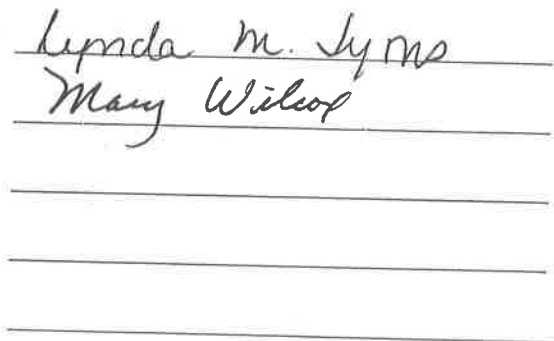 Lynda M. Lyons
Mary Wilcox